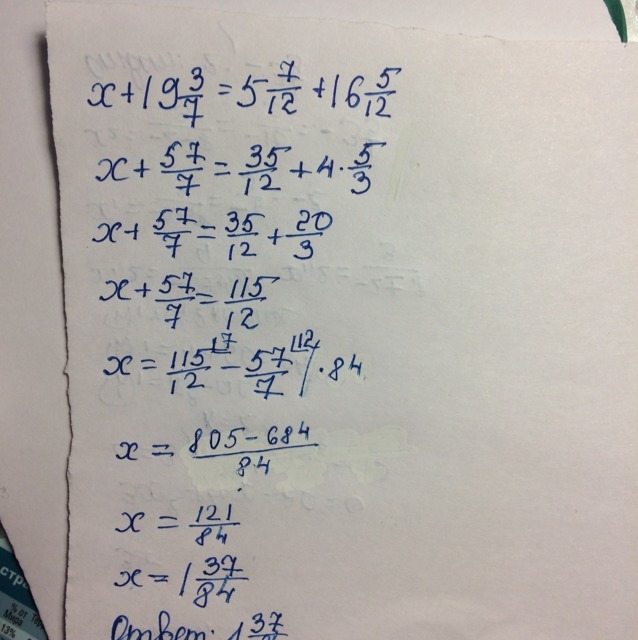 x+19 3/7=5 7/12+16 5/12
x+57/7=35/12+4·5/3
x+57/7=35/12+20/3
x+57/7=115/12
x=115/12|7-57/7|12/·84
x=805-684/84
x=121/84
x=1 37/84
Ответ: 1 37
стр
% от
Мира
13%